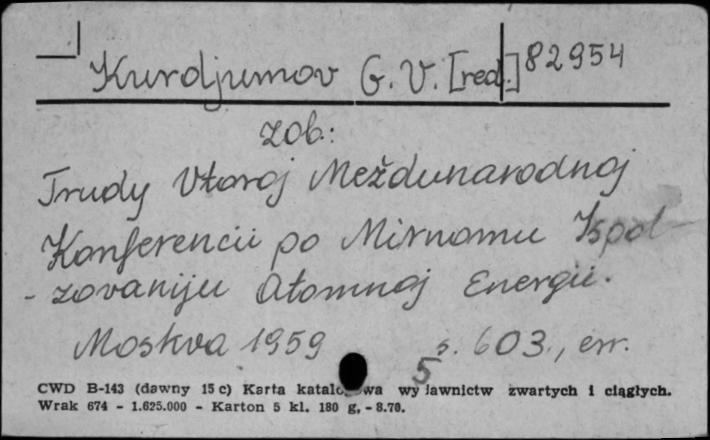 Kurdjumov G. V. [red.] 82954
zob.:
Trudy Vtoroj Meždunarodnoj
Konferencii po Mirnomu Ispol-
-zovaniju Atomnoj Energii.
Moskva 1959 s. 603., err.
5
CWD B-143 (dawny 15 c) Karta katalogowa wydawnictw zwartych i ciągłych.
Wrak 674 - 1.625.000 - Karton 5 kl. 180 g. - 8.70.